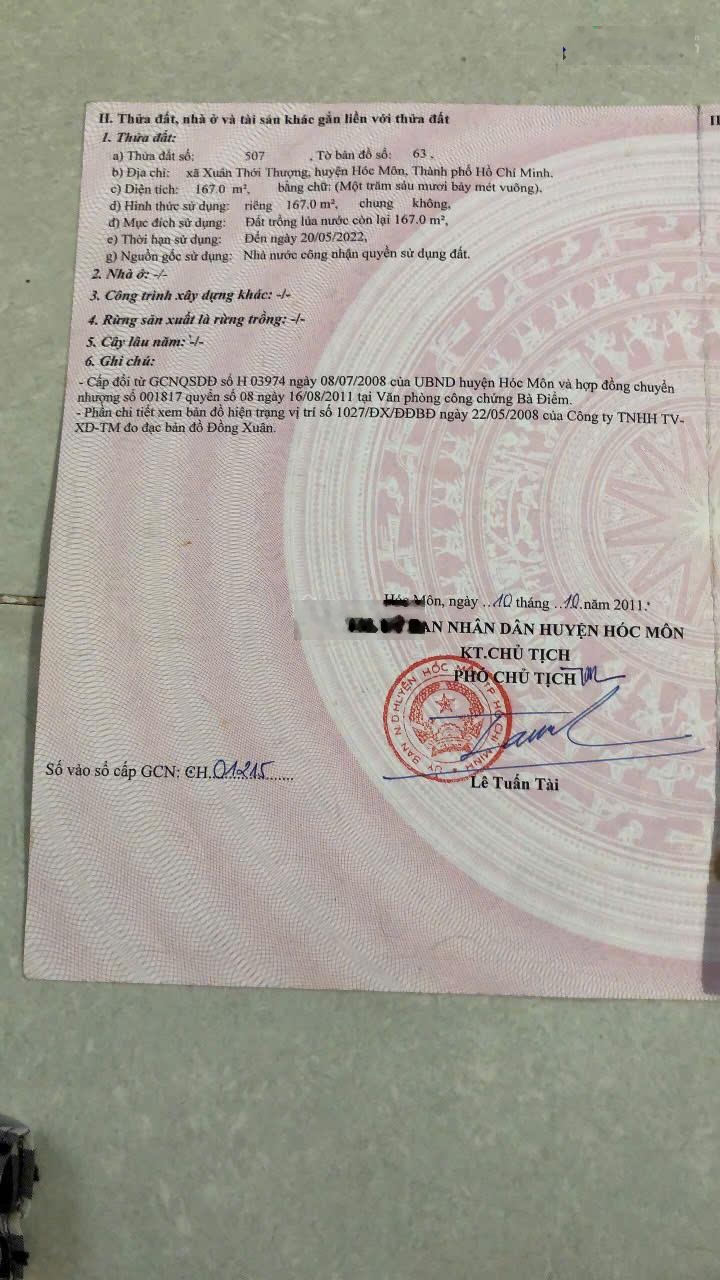 II. Thửa đất, nhà ở và tài sản khác gắn liền với thửa đất
II
1. Thửa đất:
a) Thửa đất số: 507 , Tờ bản đồ số: 63 ,
b) Địa chỉ: xã Xuân Thới Thượng, huyện Hóc Môn, Thành phố Hồ Chí Minh.
c) Diện tích: 167.0 m², bằng chữ: (Một trăm sáu mươi bảy mét vuông).
d) Hình thức sử dụng: riêng 167.0 m², chung không,
đ) Mục đích sử dụng: Đất trồng lúa nước còn lại 167.0 m²,
e) Thời hạn sử dụng: Đến ngày 20/05/2022,
g) Nguồn gốc sử dụng: Nhà nước công nhận quyền sử dụng đất.
2. Nhà ở: -/-
3. Công trình xây dựng khác: -/-
4. Rừng sản xuất là rừng trồng: -/-
5. Cây lâu năm: -/-
6. Ghi chú:
- Cấp đổi từ GCNQSDĐ số H 03974 ngày 08/07/2008 của UBND huyện Hóc Môn và hợp đồng chuyển
nhượng số 001817 quyển số 08 ngày 16/08/2011 tại Văn phòng công chứng Bà Điểm.
- Phần chi tiết xem bản đồ hiện trạng vị trí số 1027/ĐX/ĐĐBĐ ngày 22/05/2008 của Công ty TNHH TV-
XD-TM đo đạc bản đồ Đồng Xuân.
Hóc Môn, ngày ..10 tháng ..10.năm 2011.
AN NHÂN DÂN HUYỆN HÓC MÔN
KT.CHỦ TỊCH
PHÓ CHỦ TỊCH
ỦY BAN N D HUYỆN HÓC MÔN TP HỒ CHÍ MINH
Số vào sổ cấp GCN: CH.01215......
Lê Tuấn Tài